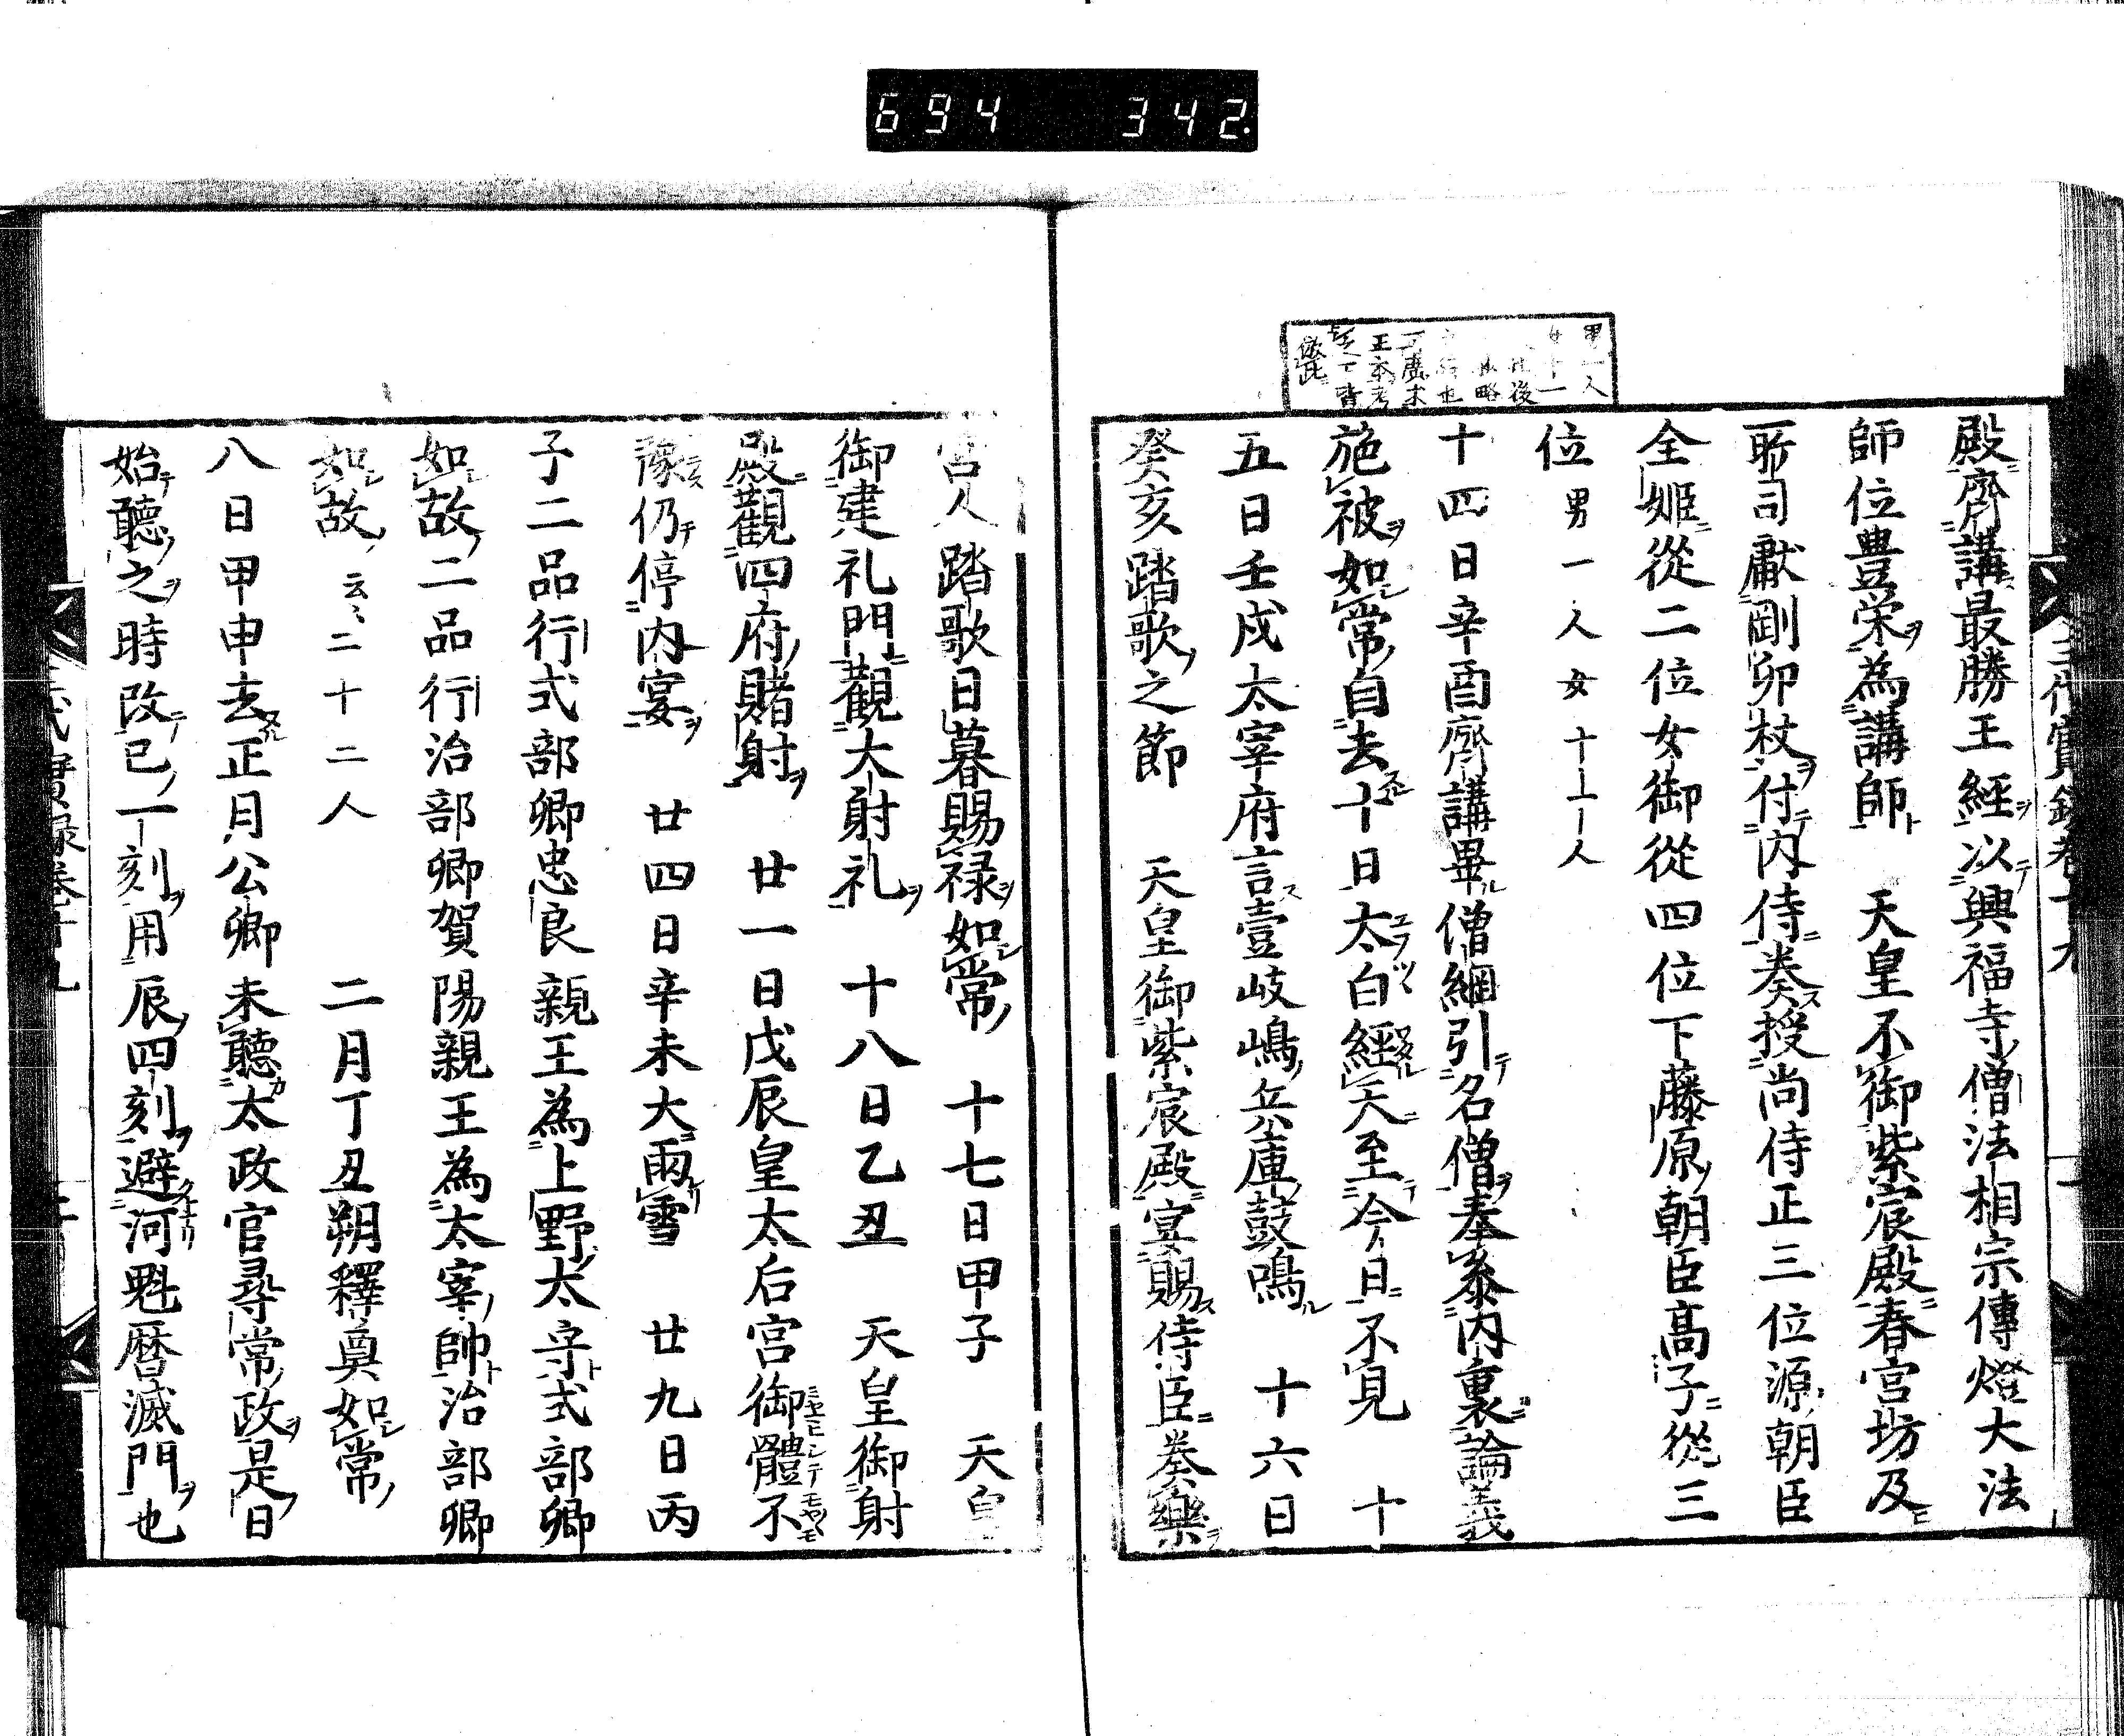 694 342
殿齊講最勝王經以興福寺僧法相宗傳燈大法
師位豊栄為講師 天皇不御紫宸殿春宮坊及
所司獻剛卯杖付内侍奏授尚侍正三位源朝臣
全姫從二位女御從四位下藤原朝臣髙子從三
位男一人女十一人
十四日辛酉齊講畢僧綱引名僧奉参内裏論義
施被如常自去十日太白經天至今日不見 十
五日壬戌太宰府言壹岐嶋兵庫鼓鳴 十六日
癸亥踏歌之節 天皇御紫宸殿宴賜侍臣奏樂
宮人踏歌日暮賜禄如常 十七日甲子 天皇
御建礼門觀大射礼 十八日乙丑 天皇御射
殿觀四府賭射 廿一日戊辰皇太后宮御體不
豫仍停内宴 廿四日辛未大雨雪 廿九日丙
子二品行式部卿忠良親王為上野太守式部卿
如故二品行治部卿賀陽親王為太宰帥治部卿
如故云〻二十二人 二月丁丑朔釋奠如常
八日甲申去正月公卿未聽太政官尋常政是日
始聽之時改巳一刻用辰四刻避河魁暦滅門也